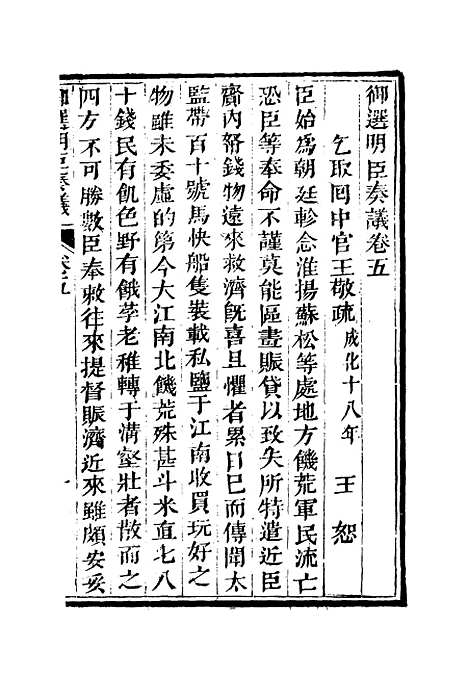 御選明臣奏議卷五
乞取回中官王敬疏 成化十八年 王恕
臣始為朝廷軫念淮揚蘇松等處地方饑荒軍民流亡
恐臣等奉命不謹莫能區畫賑貸以致失所特遣近臣
齎內帑錢物遠來救濟旣喜且懼者累日已而傳聞太
監帶百十號馬快船隻裝載私鹽于江南收買玩好之
物雖未委虛的第今大江南北饑荒殊甚斗米直七八
十錢民有飢色野有餓莩老稚轉于溝壑壯者散而之
四方不可勝數臣奉敕往來提督賑濟近來雖頗安妥
御選明臣奏議
卷五
一